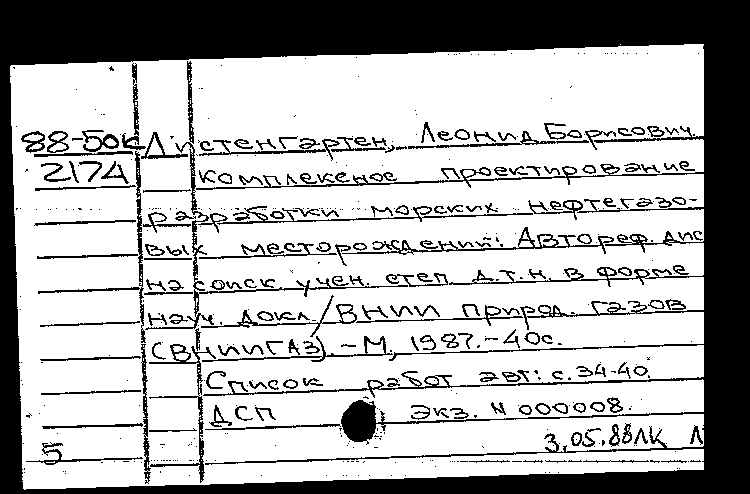 88-50к Листенгартен, Леонид Борисович
2174 Комплексное проектирование
разработки морских нефтегазо-
вых месторождений: Автореф. дис
на соиск. учен. степ. д.т.н. в форме
науч. докл./ВНИИ природ. газов
(ВНИИГАЗ). - М, 1987. - 40с.
Список работ авт: с. 34-40.
ДСП Экз. N 000008.
3.05.88 ЛК Л
5